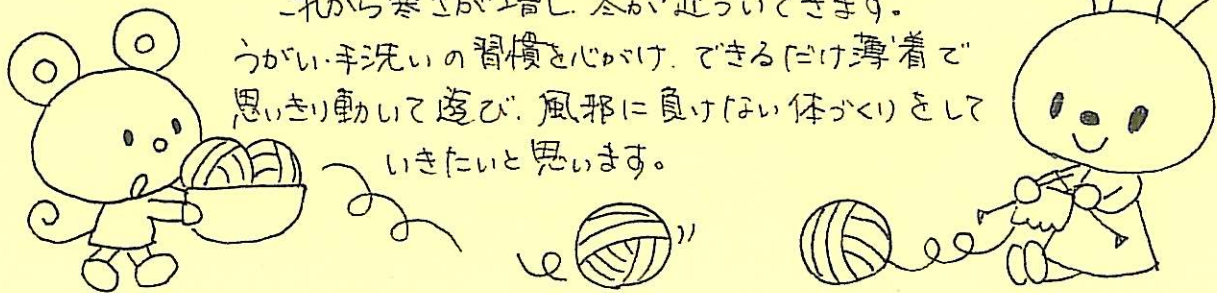 これから寒さが増し、冬が近づいてきます。
うがい・手洗いの習慣を心がけ、できるだけ薄着で
思いきり動いて遊び、風邪に負けない体づくりをして
いきたいと思います。